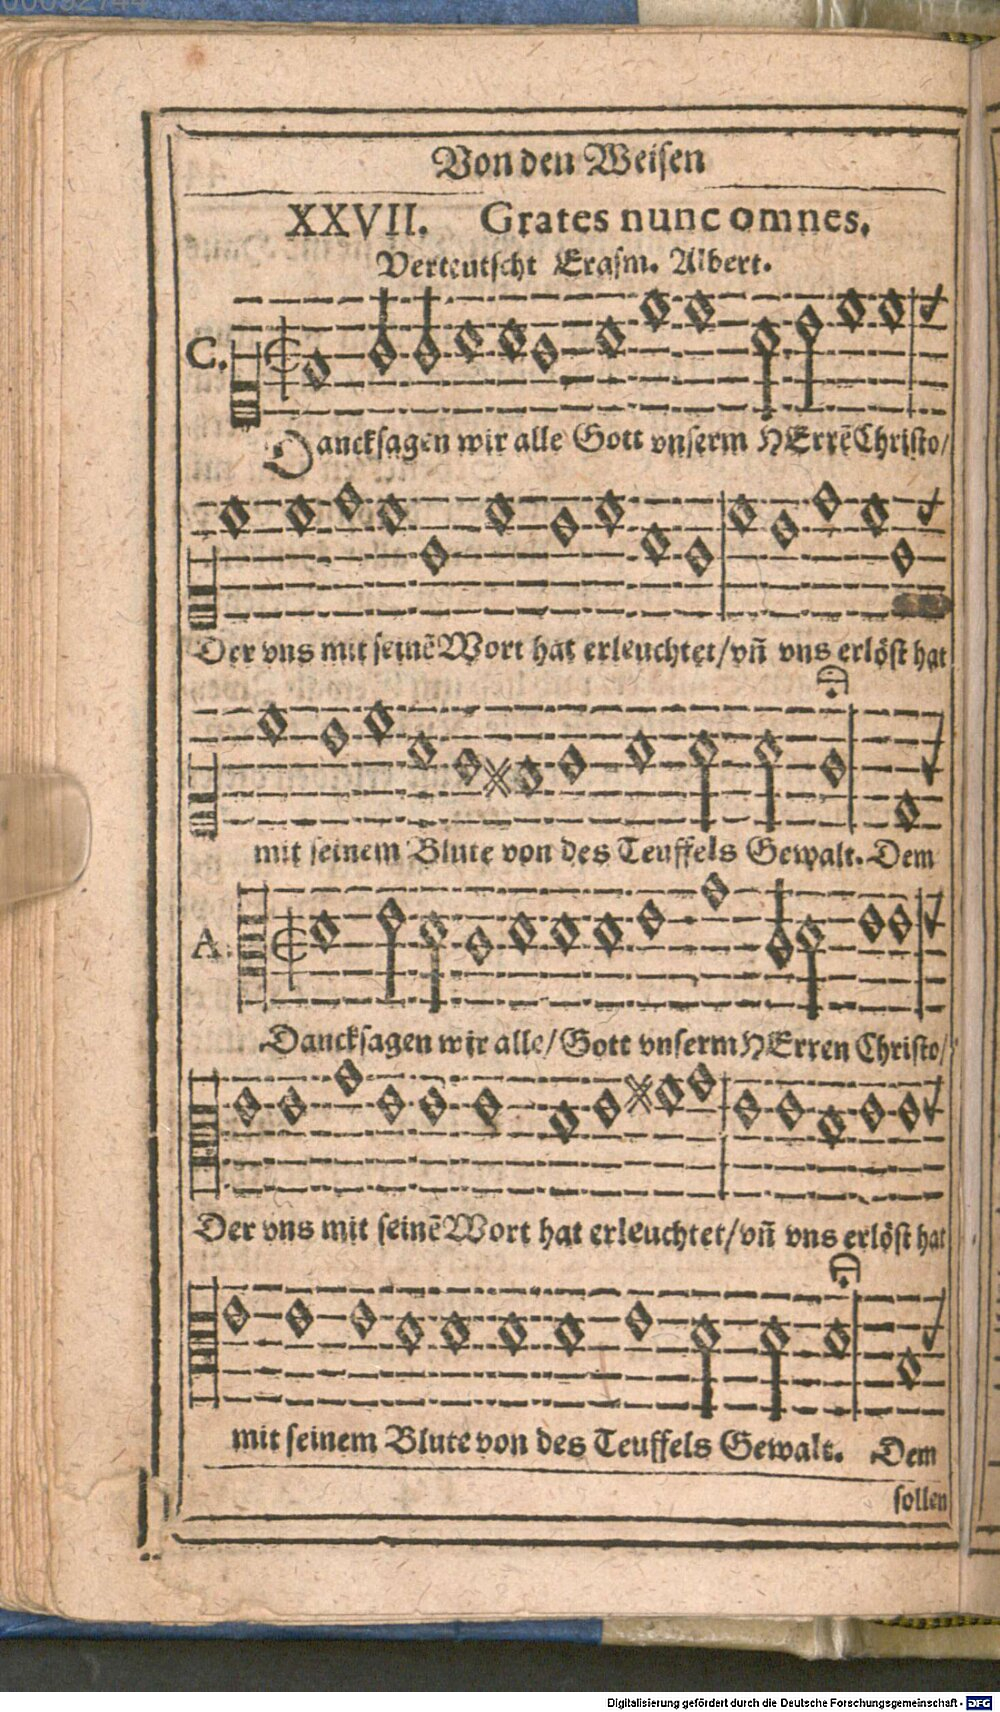 Von den Weisen
XXVII. Grates nunc omnes.
Verteutscht Erasm. Albert.
C.
Dancksagen wir alle Gott vnserm HErrẽ Christo/
Der vns mit seinẽ Wort hat erleuchtet/vñ vns erlöst hat
mit seinem Blute von des Teuffels Gewalt. Dem
A.
Dancksagen wir alle/Gott vnserm HErren Christo/
Der vns mit seinẽ Wort hat erleuchtet/vñ vns erlöst hat
mit seinem Blute von des Teuffels Gewalt. Dem
sollen
Digitalisierung gefördert durch die Deutsche Forschungsgemeinschaft - DFG